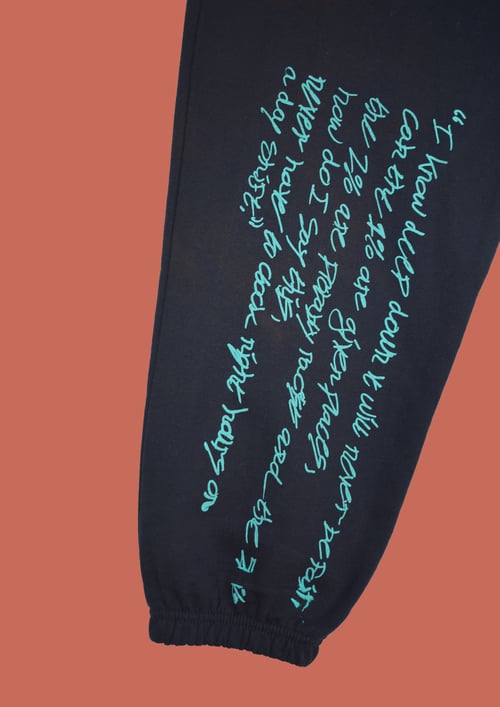 "I know deep down it will never be fair,
can the 1% are given places,
the 2% are Parody nose and the 3 %
how do I say this,
never have to clock right hours on
a day shift,"